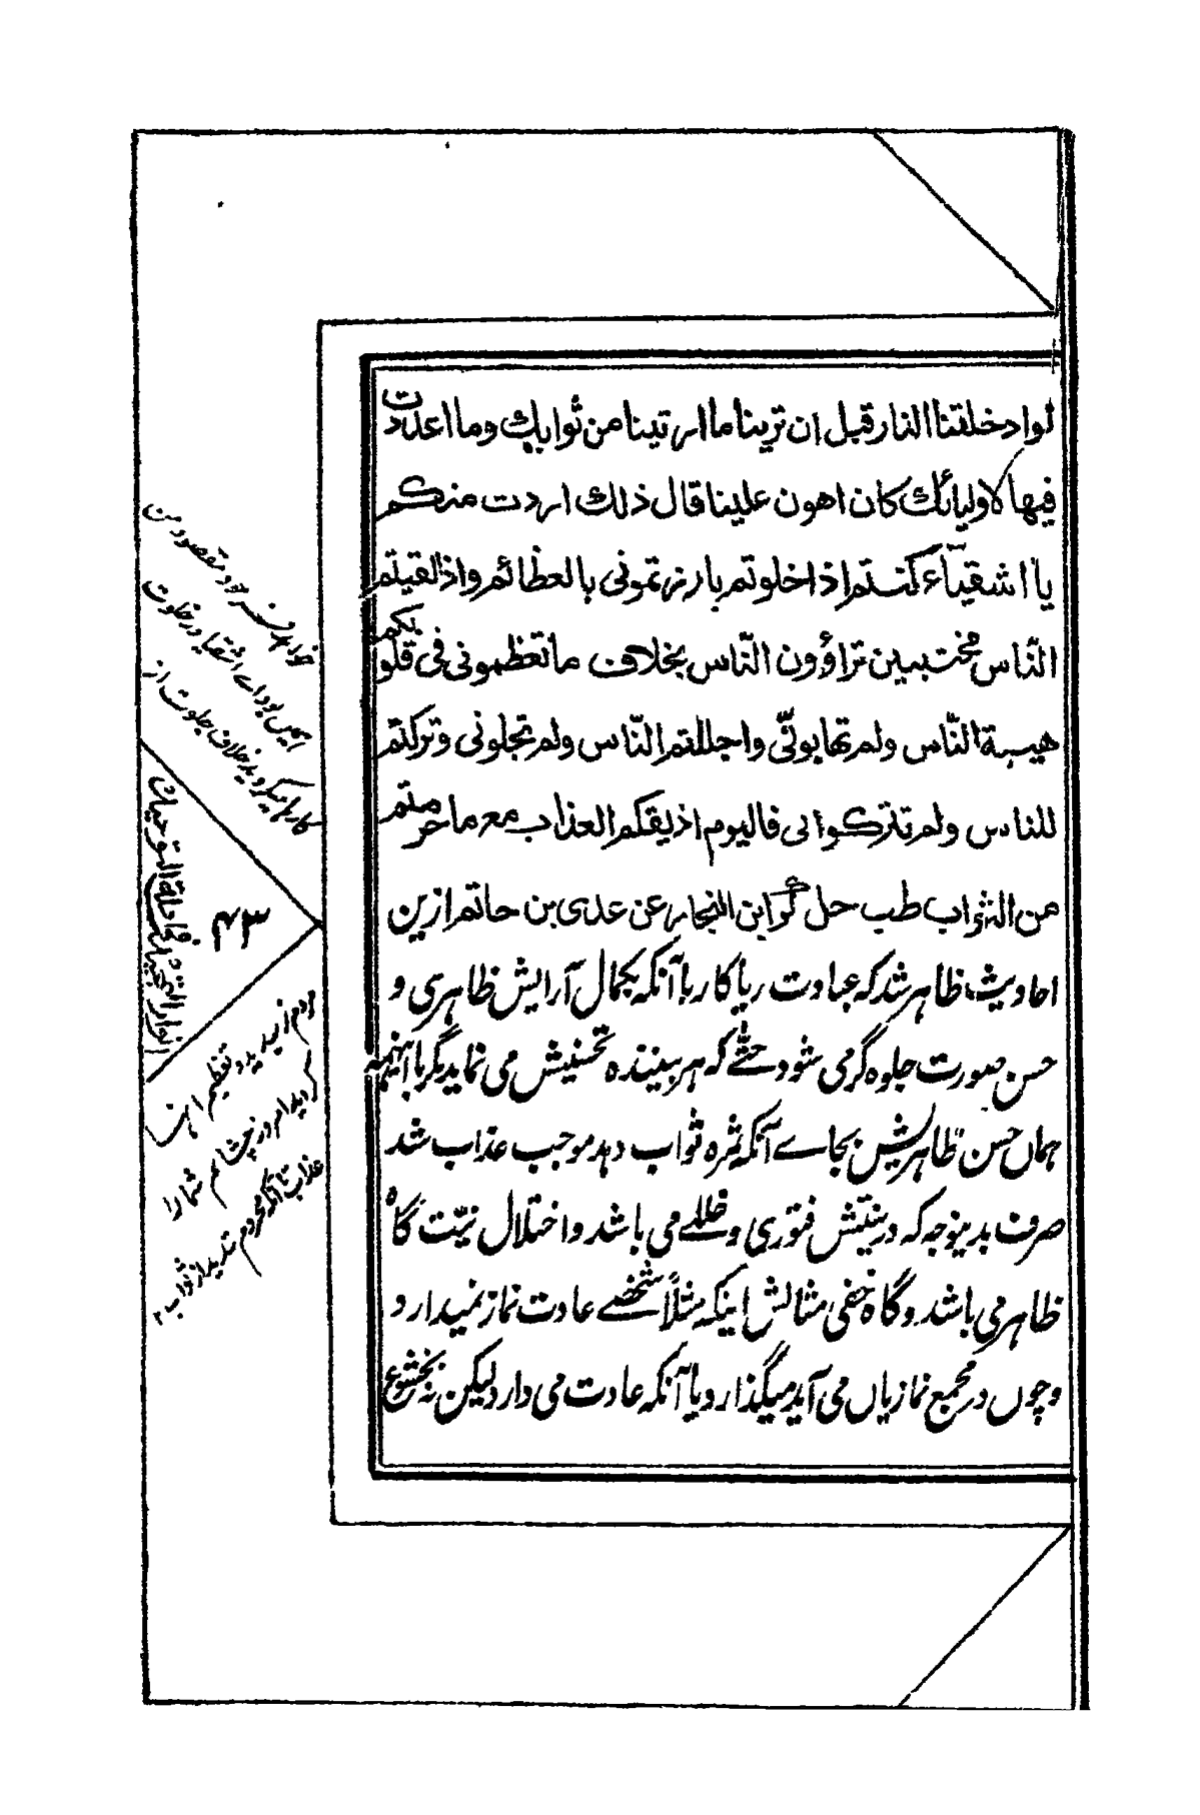 لو ادخلتنا النار قبل ان ترينا ما اريتنا من ثوابك وما اعددت
فيها لاوليائك كان اهون علينا قال ذلك اردت منكم
يا اشقيآء كنتم اذا خلوتم بارزتمونى بالعظائم واذا لقيتم
النّاس مخبتين تراؤون النّاس بخلاف ما تعظمونى فى قلوبكم
هيبة النّاس ولم تهابونّى واجللتم النّاس ولم تجلونى وتركتم
للناس ولم تتركوا لى فاليوم اذيقكم العذاب مع ما حرمتم
من الثواب طب حل كر ابن النجار عن عدى بن حاتم ازين
احاديث ظاهر شد كه عبادت رياكار باآنكه بكمال آرايش ظاهرى و
حسن صورت جلوه گر مى شود حتّے كه هر بيننده تحسينش مى نمايد مگر با اينهمه
همان حسن ظاهريش بجاے آنكه ثمره ثواب دهد موجب عذاب شد
صرف بدينوجه كه در نيتش فتورى وخللے مى باشد واختلال نيّت گاه
ظاهر مى باشد وگاه خفى مثالش اينكه مثلاً شخصے عادت نماز نميدارد و
وچوں در مجمع نمازياں مى آيد ميگذارد ويا آنكه عادت مى دارد ليكن نه بخشوع
خواهد فرمود مقصود من
همين بود اے اشقيا در خلوت
كارها ميكرديد خلاف جلوت از
۴۳
مردم
عذاب تا آنكه محروم شديد از ثواب ۲